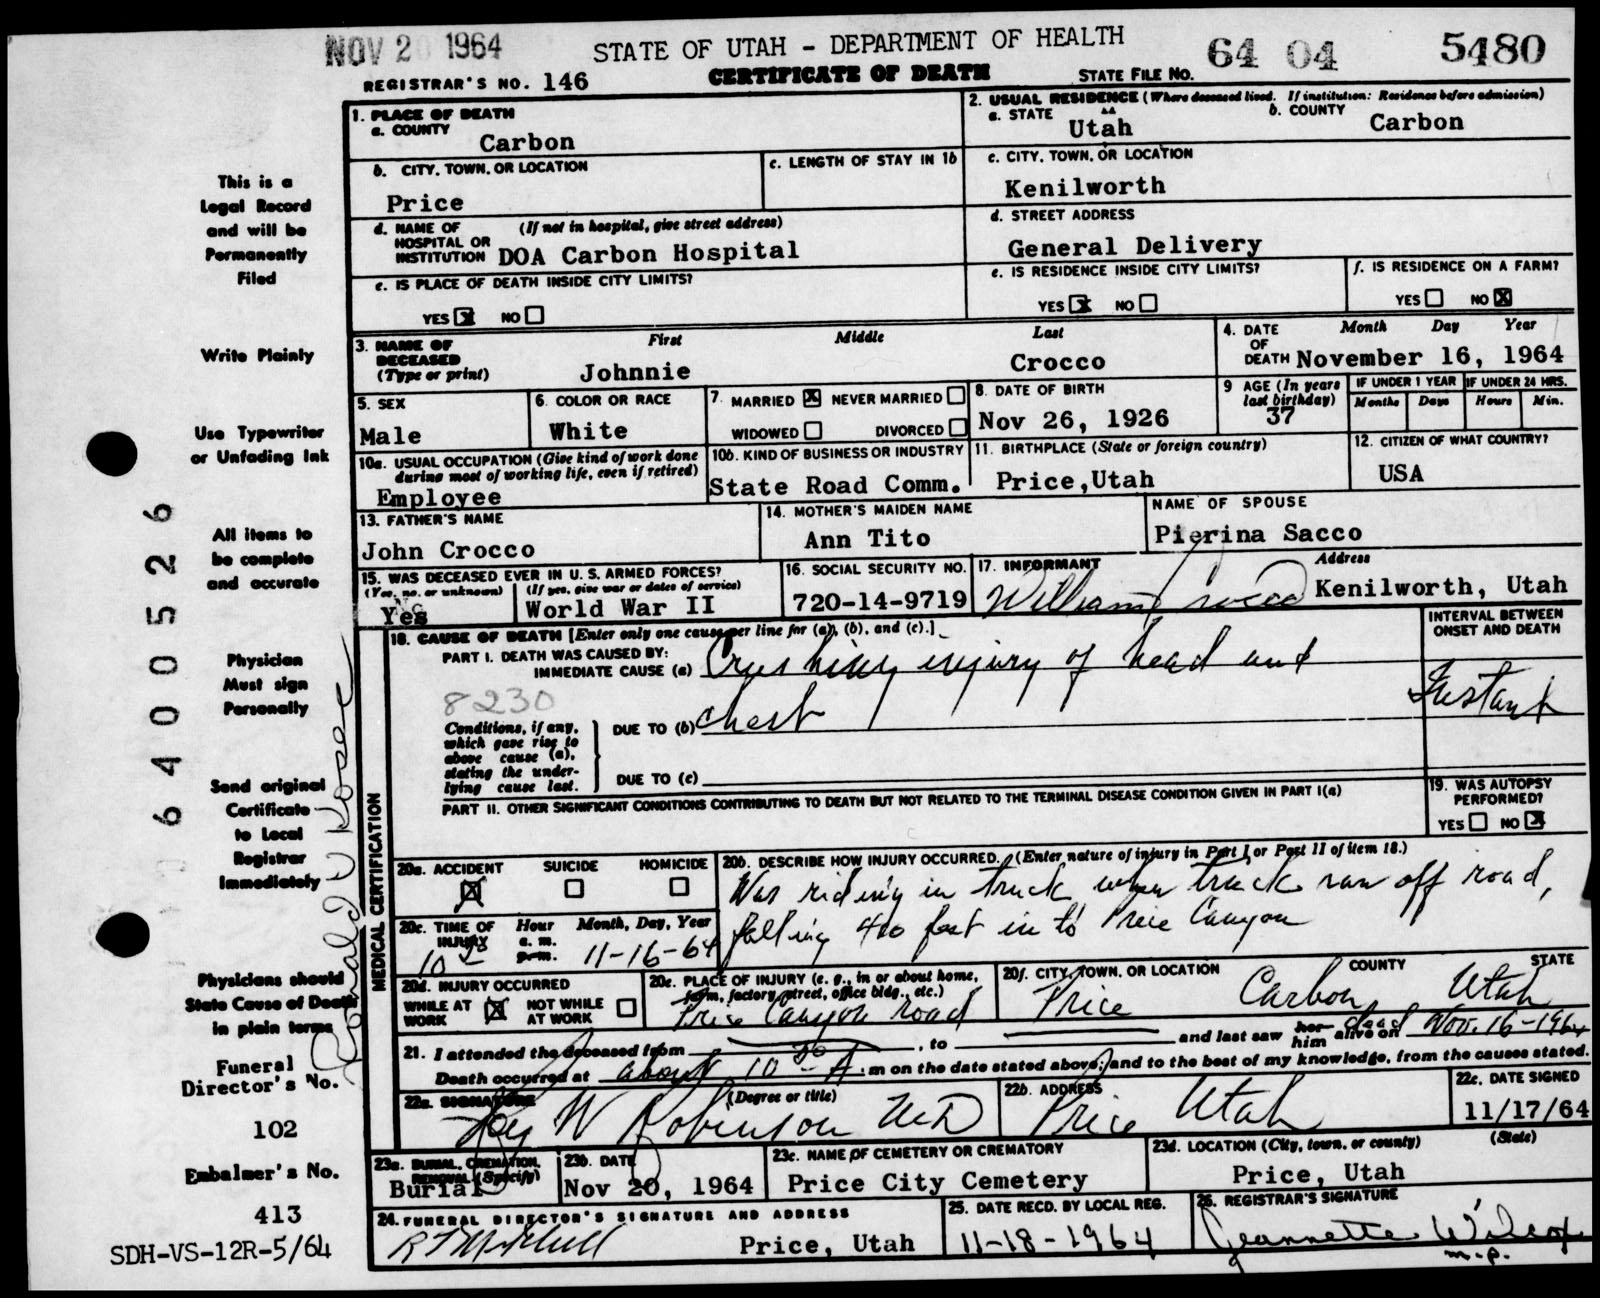 NOV 20 1964
STATE OF UTAH - DEPARTMENT OF HEALTH
64 04 5480
REGISTRAR'S NO. 146
CERTIFICATE OF DEATH
STATE FILE NO.
1. PLACE OF DEATH
a. COUNTY
Carbon
2. USUAL RESIDENCE (Where deceased lived. If institution: Residence before admission)
a. STATE
Utah
b. COUNTY
Carbon
b. CITY, TOWN, OR LOCATION
Price
c. LENGTH OF STAY IN 1b
c. CITY, TOWN, OR LOCATION
Kenilworth
d. NAME OF HOSPITAL OR INSTITUTION
(If not in hospital, give street address)
DOA Carbon Hospital
d. STREET ADDRESS
General Delivery
e. IS PLACE OF DEATH INSIDE CITY LIMITS?
YES X NO
e. IS RESIDENCE INSIDE CITY LIMITS?
YES X NO
f. IS RESIDENCE ON A FARM?
YES NO X
3. NAME OF DECEASED
(Type or print)
First Middle Last
Johnnie Crocco
4. DATE OF DEATH
Month Day Year
November 16, 1964
5. SEX
Male
6. COLOR OR RACE
White
7. MARRIED X NEVER MARRIED
WIDOWED DIVORCED
8. DATE OF BIRTH
Nov 26, 1926
9 AGE (In years last birthday)
37
IF UNDER 1 YEAR
Months Days
IF UNDER 24 HRS.
Hours Min.
10a. USUAL OCCUPATION (Give kind of work done during most of working life, even if retired)
Employee
10b. KIND OF BUSINESS OR INDUSTRY
State Road Comm.
11. BIRTHPLACE (State or foreign country)
Price,Utah
12. CITIZEN OF WHAT COUNTRY?
USA
13. FATHER'S NAME
John Crocco
14. MOTHER'S MAIDEN NAME
Ann Tito
NAME OF SPOUSE
Pierina Sacco
15. WAS DECEASED EVER IN U. S. ARMED FORCES?
(Yes, no, or unknown) (If yes, give war or dates of service)
Yes World War II
16. SOCIAL SECURITY NO.
720-14-9719
17. INFORMANT Address
William Crocco Kenilworth, Utah
18. CAUSE OF DEATH [Enter only one cause per line for (a), (b), and (c).]
INTERVAL BETWEEN ONSET AND DEATH
PART I. DEATH WAS CAUSED BY:
IMMEDIATE CAUSE (a) Crushing injury of head and
8230
Instant
Conditions, if any, which gave rise to above cause (a), stating the underlying cause last.
DUE TO (b) chest
DUE TO (c)
PART II. OTHER SIGNIFICANT CONDITIONS CONTRIBUTING TO DEATH BUT NOT RELATED TO THE TERMINAL DISEASE CONDITION GIVEN IN PART I(a)
19. WAS AUTOPSY PERFORMED?
YES NO X
MEDICAL CERTIFICATION
20a. ACCIDENT SUICIDE HOMICIDE
X
20b. DESCRIBE HOW INJURY OCCURRED. (Enter nature of injury in Part I or Part II of item 18.)
Was riding in truck when truck ran off road,
falling 400 feet in to Price Canyon
20c. TIME OF INJURY
Hour a. m. p. m.
Month, Day, Year
10 30 11-16-64
20d. INJURY OCCURRED
WHILE AT WORK X NOT WHILE AT WORK
20e. PLACE OF INJURY (e. g., in or about home, farm, factory, street, office bldg., etc.)
Price Canyon road
20f. CITY, TOWN, OR LOCATION COUNTY STATE
Price Carbon Utah
21. I attended the deceased from , to and last saw her him alive on dead Nov. 16-1964
Death occurred at about 10 30 A .m on the date stated above; and to the best of my knowledge, from the causes stated.
22a. SIGNATURE (Degree or title)
Roy W Robinson MD
22b. ADDRESS
Price Utah
22c. DATE SIGNED
11/17/64
23a. BURIAL, CREMATION, REMOVAL (Specify)
Burial
23b. DATE
Nov 20, 1964
23c. NAME OF CEMETERY OR CREMATORY
Price City Cemetery
23d. LOCATION (City, town, or county) (State)
Price, Utah
24. FUNERAL DIRECTOR'S SIGNATURE AND ADDRESS
R F Mitchell Price, Utah
25. DATE RECD. BY LOCAL REG.
11-18-1964
26. REGISTRAR'S SIGNATURE
Jeannette Wilcox
m.p.
This is a
Legal Record
and will be
Permanently
Filed
Write Plainly
Use Typewriter
or Unfading Ink
All items to
be complete
and accurate
Physician
Must sign
Personally
Send original
Certificate
to Local
Registrar
Immediately
Physicians should
State Cause of Death
in plain terms
Funeral
Director's No.
102
Embalmer's No.
413
SDH-VS-12R-5/64
6400526